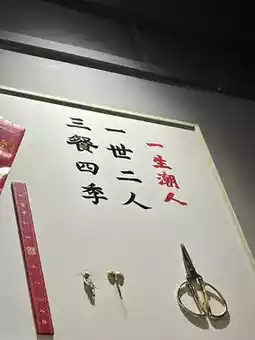 一生潮人
一世二人
三餐四季